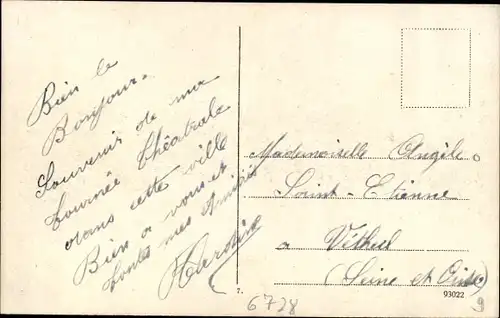 Bien le
Bonjour.
Souvenir de ma
tournée théâtrale
dans cette ville
Bien a vous et
toutes mes amitiés
Mademoiselle Angèle
Saint-Etienne
a Vétheuil
(Seine et Oise)
7.
93022
6728
9